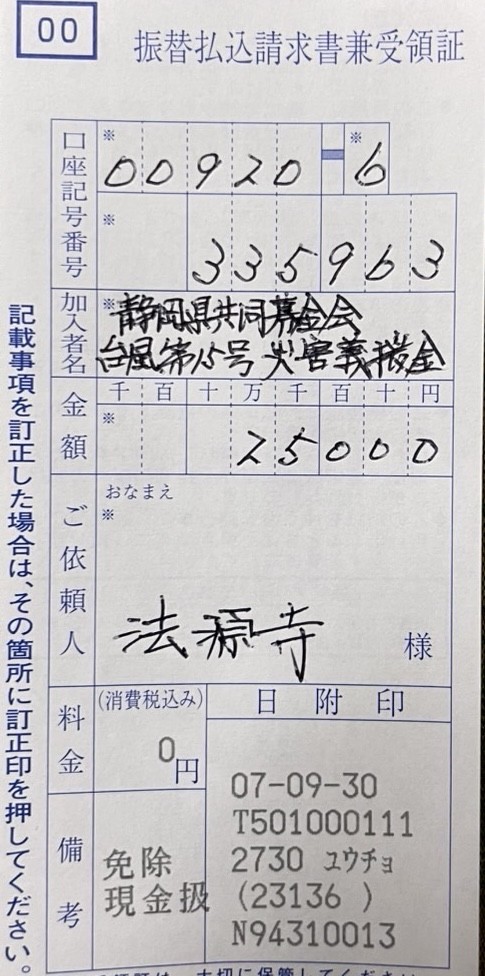 00
振替払込請求書兼受領証
口座記号番号
※
00920-6
※
※
335963
加入者名
※
静岡県共同募金会
台風第15号災害義援金
金額
千百十万千百十円
※
25000
ご依頼人
おなまえ
※
法源寺
様
料金
(消費税込み)
0円
日附印
07-09-30
T501000111
2730 ユウチョ
(23136 )
N94310013
備考
免除
現金扱
記載事項を訂正した場合は、その箇所に訂正印を押してください。